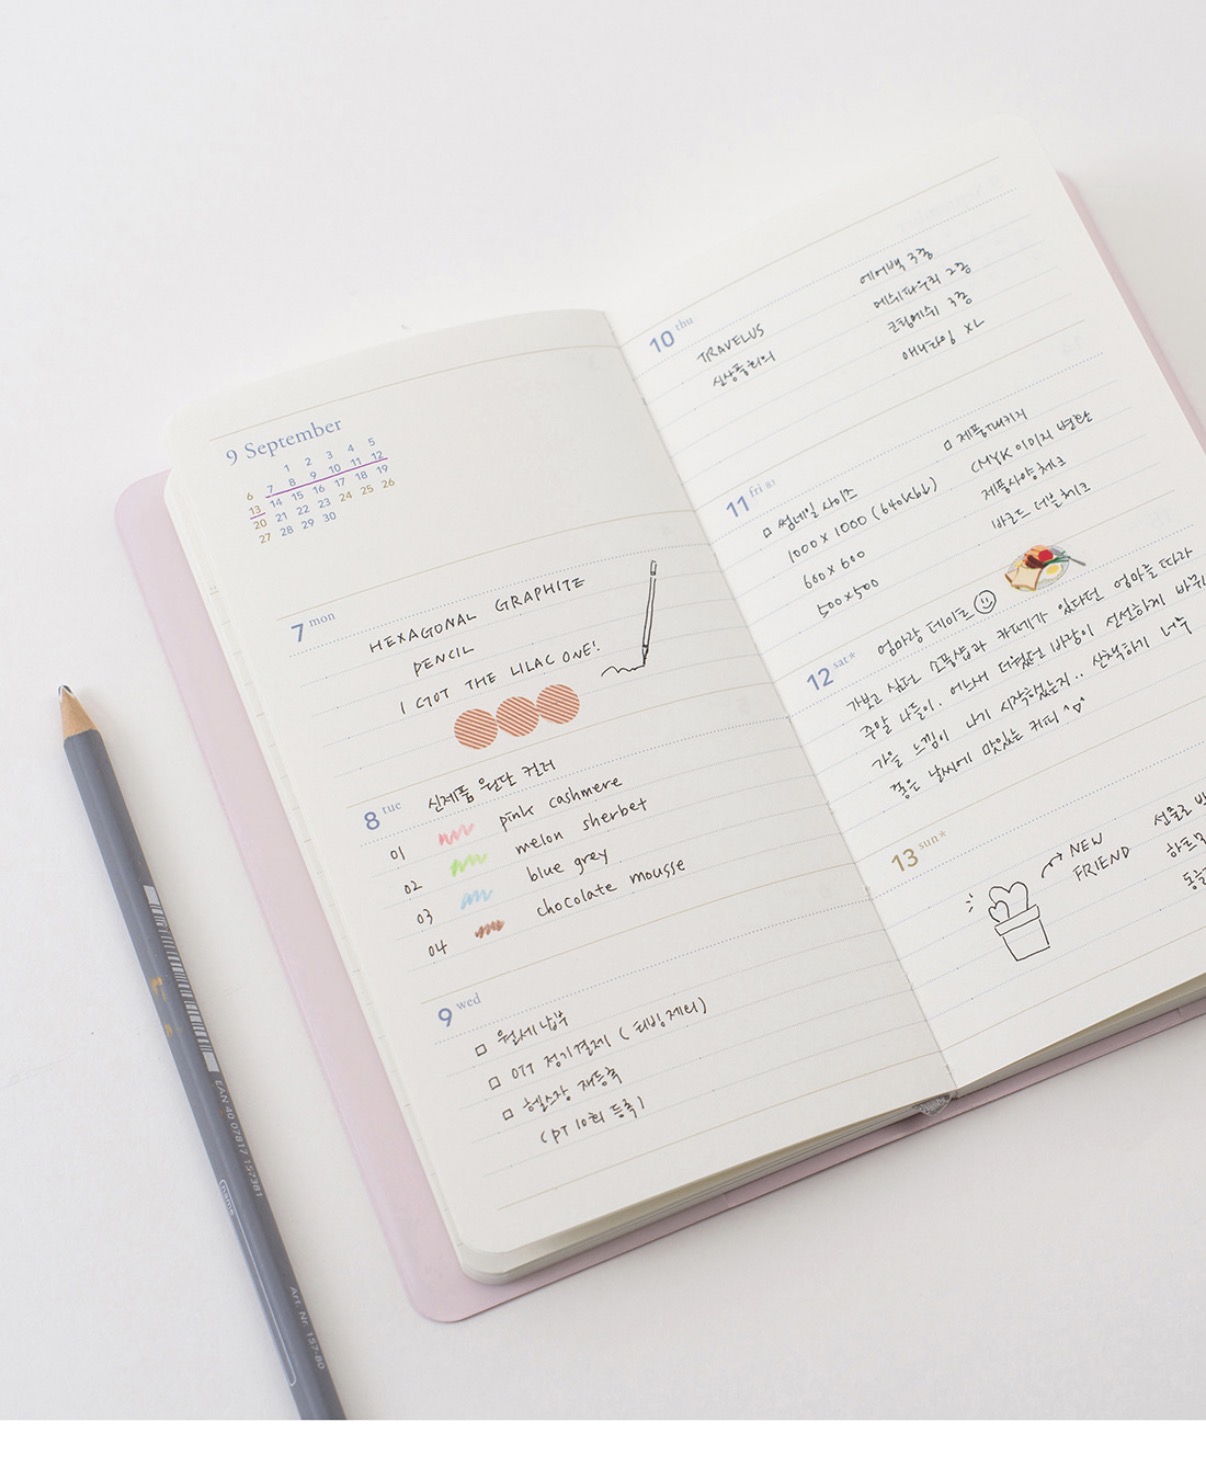 9 September
1 2 3 4 5
6 7 8 9 10 11 12
13 14 15 16 17 18 19
20 21 22 23 24 25 26
27 28 29 30
7 mon
HEXAGONAL GRAPHITE
PENCIL
I GOT THE LILAC ONE!
8 tue
신제품 원단 컬러
01 pink cashmere
02 melon sherbet
03 blue grey
04 chocolate mousse
9 wed
월세 납부
OTT 정기결제 (티빙, 제티)
헬스장 재등록
(PT 10회 등록)
10 thu
TRAVELUS
신상품회의
에어백 3종
메쉬파우치 2종
코팅메쉬 3종
애니타임 XL
11 fri
썸네일 사이즈
1000 x 1000 (640kbb)
600 x 600
500 x 500
제품패키지
CMYK 이미지 변환
제품사양체크
바코드 더블체크
12 sat*
엄마랑 데이트
가보고 싶던 소품샵과 카페가 있다던 엄마를 따라
주말 나들이. 어느새 더웠던 바람이 선선하게 바뀌
가을 느낌이 나기 시작했는지.. 산책하기 너무
좋은 날씨에 맛있는 커피
13 sun*
NEW
FRIEND
선물로
EAN 40 07817 157381
name
Art. Nr. 157-80